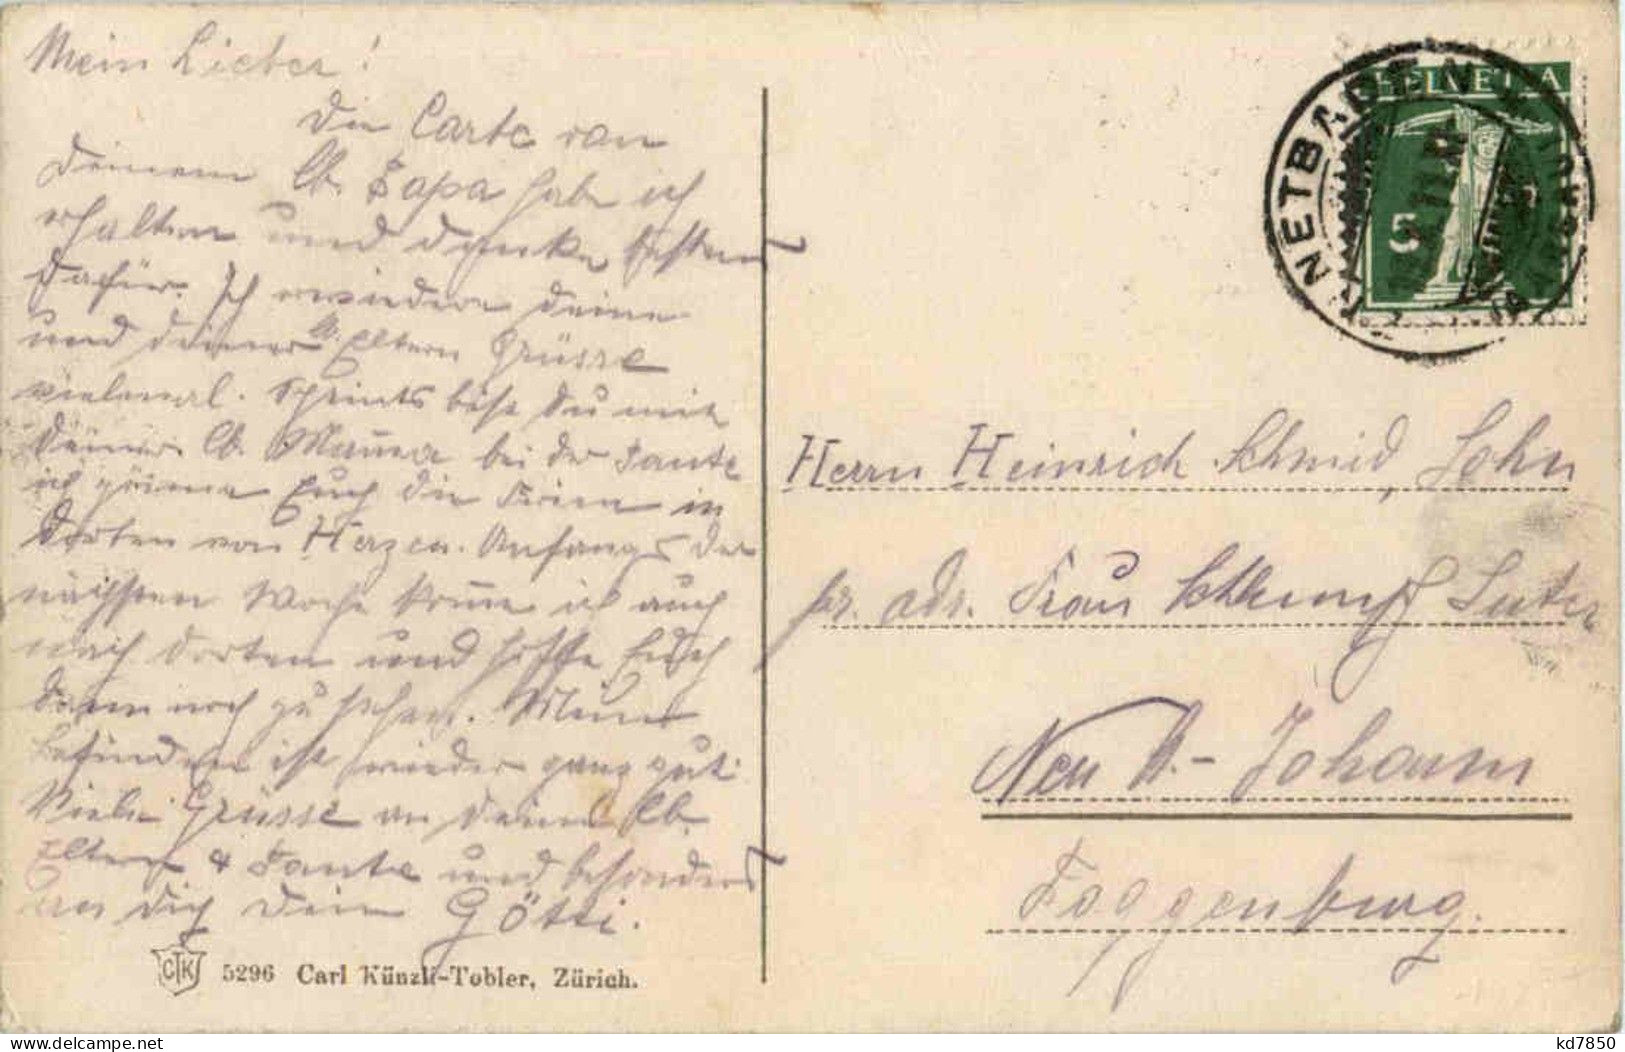 Mein Lieber!
Die Carte von
Deinem lb. Papa habe ich
erhalten und danke bestens
dafür. Ich erwiedere deine
und deiner lb. Eltern Grüsse
vielmal. Scheints bist Du mit
Deiner lb. Mama bei der Tante
ich gönne Euch die Ferien in
dorten von Herzen. Anfangs der
nächsten Woche komme ich auch
nach dorten und hoffe Euch
dann noch zu sehen. Mein
befinden ist wieder ganz gut.
Viele Grüsse an Deine lb.
Eltern & Tante und besonders
an dich Dein Götti.
CTK 5296 Carl Künzli-Tobler, Zürich.
HELVETIA
5
ENNETBADEN
Herrn Heinrich Schmid, Sohn
pr. adr. Frau Schlumpf Suter
Neu St-Johann
Toggenburg.
kd7850